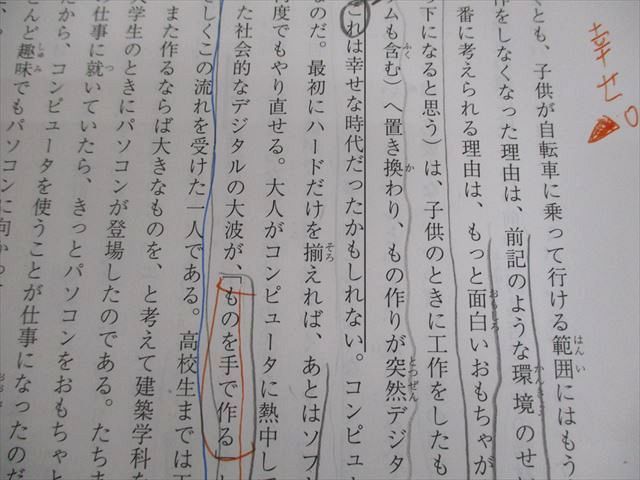 幸せ。
くとも、子供が自転車に乗って行ける範囲にはもう
作をしなくなった理由は、前記のような環境のせい
番に考えられる理由は、もっと面白いおもちゃが
下になると思う)は、子供のときに工作をしたも
ムも含む)へ置き換わり、もの作りが突然デジタ
これは幸せな時代だったかもしれない。コンピュ
なのだ。最初にハードだけを揃えれば、あとはソフ
度でもやり直せる。大人がコンピュータに熱中し
た社会的なデジタルの大波が、「ものを手で作る
さしくこの流れを受けた一人である。高校生までは
また作るならば大きなものを、と考えて建築学科
大学生のときにパソコンが登場したのである。たちま
の仕事に就いていたら、きっとパソコンをおもちゃと
だから、コンピュータを使うことが仕事になったのだ
とんど趣味でもパソコンに向かっ